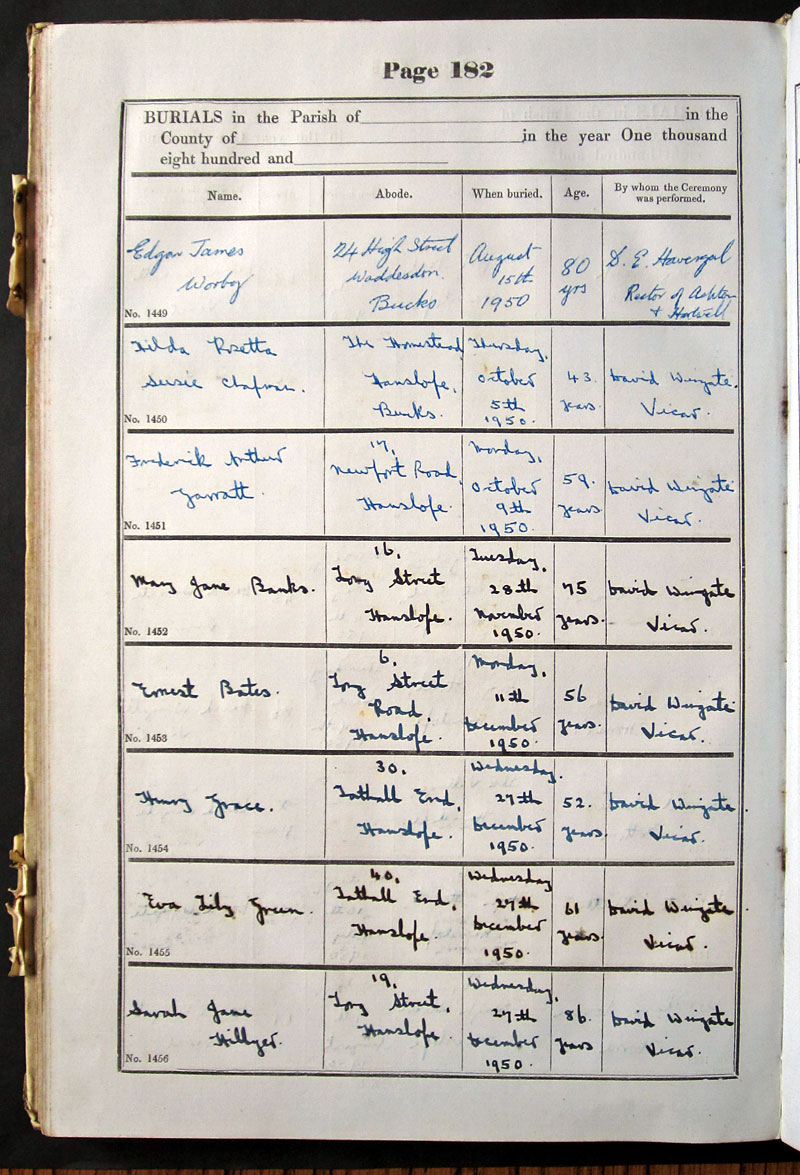 Page 182
BURIALS in the Parish of in the
County of in the year One thousand
eight hundred and
Name. Abode. When buried. Age. By whom the Ceremony was performed.
Edgar James
Worboy
No. 1449
24 High Street
Waddesdon
Bucks
August
15th
1950
80
yrs
D. E. Havergal
Rector of Ashton
+ Hartwell
Hilda Rosetta
Susie Chapman.
No. 1450
The Homestead
Hanslope,
Bucks.
Thursday,
October
5th
1950.
43.
years.
David Wingate.
Vicar.
Frederick Arthur
Garratt.
No. 1451
17,
Newport Road,
Hanslope.
Monday,
October
9th
1950.
59.
years.
David Wingate
Vicar.
Mary Jane Banks.
No. 1452
16,
Long Street
Hanslope.
Tuesday,
28th
November
1950.
75
years.
David Wingate
Vicar.
Ernest Bates.
No. 1453
6,
Long Street
Road,
Hanslope.
Monday,
11th
December
1950.
56
years.
David Wingate
Vicar.
Henry Grace.
No. 1454
30,
Tathall End,
Hanslope.
Wednesday,
27th
December
1950.
52.
years.
David Wingate
Vicar.
Eva Lily Green.
No. 1455
40,
Tathall End,
Hanslope.
Wednesday
27th
December
1950.
61
years.
David Wingate
Vicar.
Sarah Jane
Hillyer.
No. 1456
19,
Long Street,
Hanslope.
Wednesday,
27th
December
1950.
86.
years
David Wingate
Vicar.